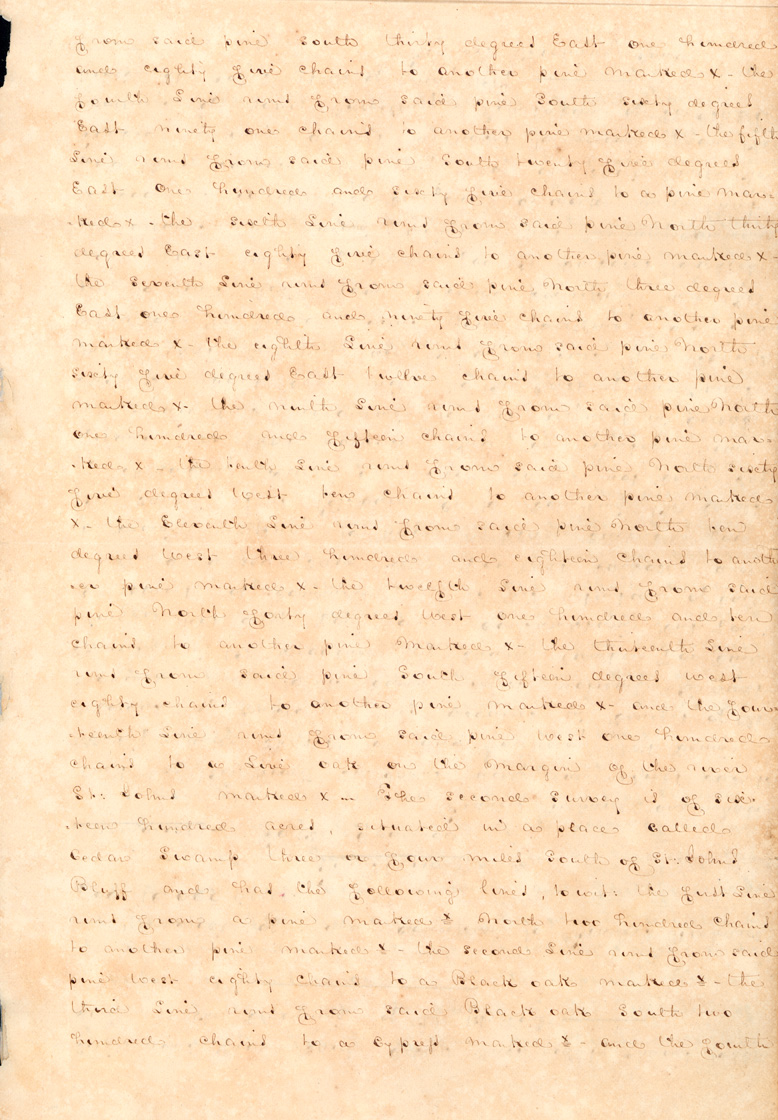 from said pine South thirty degrees East one hundred
and eighty five chains to another pine marked x - the
fourth Line runs from said pine South sixty degrees
East ninety one chains to another pine marked x - the fifth
Line runs from said pine South twenty five degrees
East one hundred and sixty five chains to a pine mar-
-ked x - the sixth Line runs from said pine North thirty
degrees East eighty five chains to another pine marked x -
the seventh Line runs from said pine North three degrees
East one hundred and ninety five chains to another pine
marked x - the eighth Line runs from said pine North
sixty five degrees East twelve chains to another pine
marked x - the ninth Line runs from said pine North
one hundred and fifteen chains to another pine mar-
-ked x - the tenth Line runs from said pine North sixty
five degrees West ten chains to another pine marked
x - the Eleventh Line runs from said pine North ten
degrees West three hundred and eighteen chains to anoth
er pine marked x - the twelfth Line runs from said
pine North forty degrees West one hundred and ten
chains to another pine marked x - the thirteenth Line
runs from said pine South fifteen degrees West
eighty chains to another pine marked x - and the four
-teenth Line runs from said pine West one hundred
chains to a Live oak on the margin of the river
St: Johns marked x - The second survey is of six-
-teen hundred acres, situated in a place called
Cedar Swamp three or four miles South of St: Johns
Bluff and has the following lines, to wit: the first Line
runs from a pine marked x North two hundred chains
to another pine marked x - the second Line runs from said
pine West eighty chains to a Black oak marked x - the
third Line runs from said Black oak South two
hundred chains to a cypress marked x - and the fourth